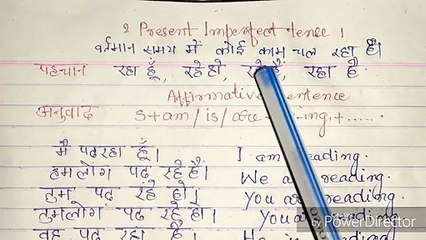 2 Present Imperfect tence ।
वर्तमान समय में कोई काम चल रहा है।
पहचान रहा हूँ, रहे हो, रहे हैं, रहा है
Affirmative Sentence
अनुवाद S+am/is/are ing+......
मै पढ़ रहा हूँ। I am reading.
हमलोग पढ़ रहे हैं। We are reading.
तुम पढ़ रहे हो। You are reading
तुमलोग पढ़ रहे हो। You
वह पढ़ रहा है। He is reading
PowerDirector